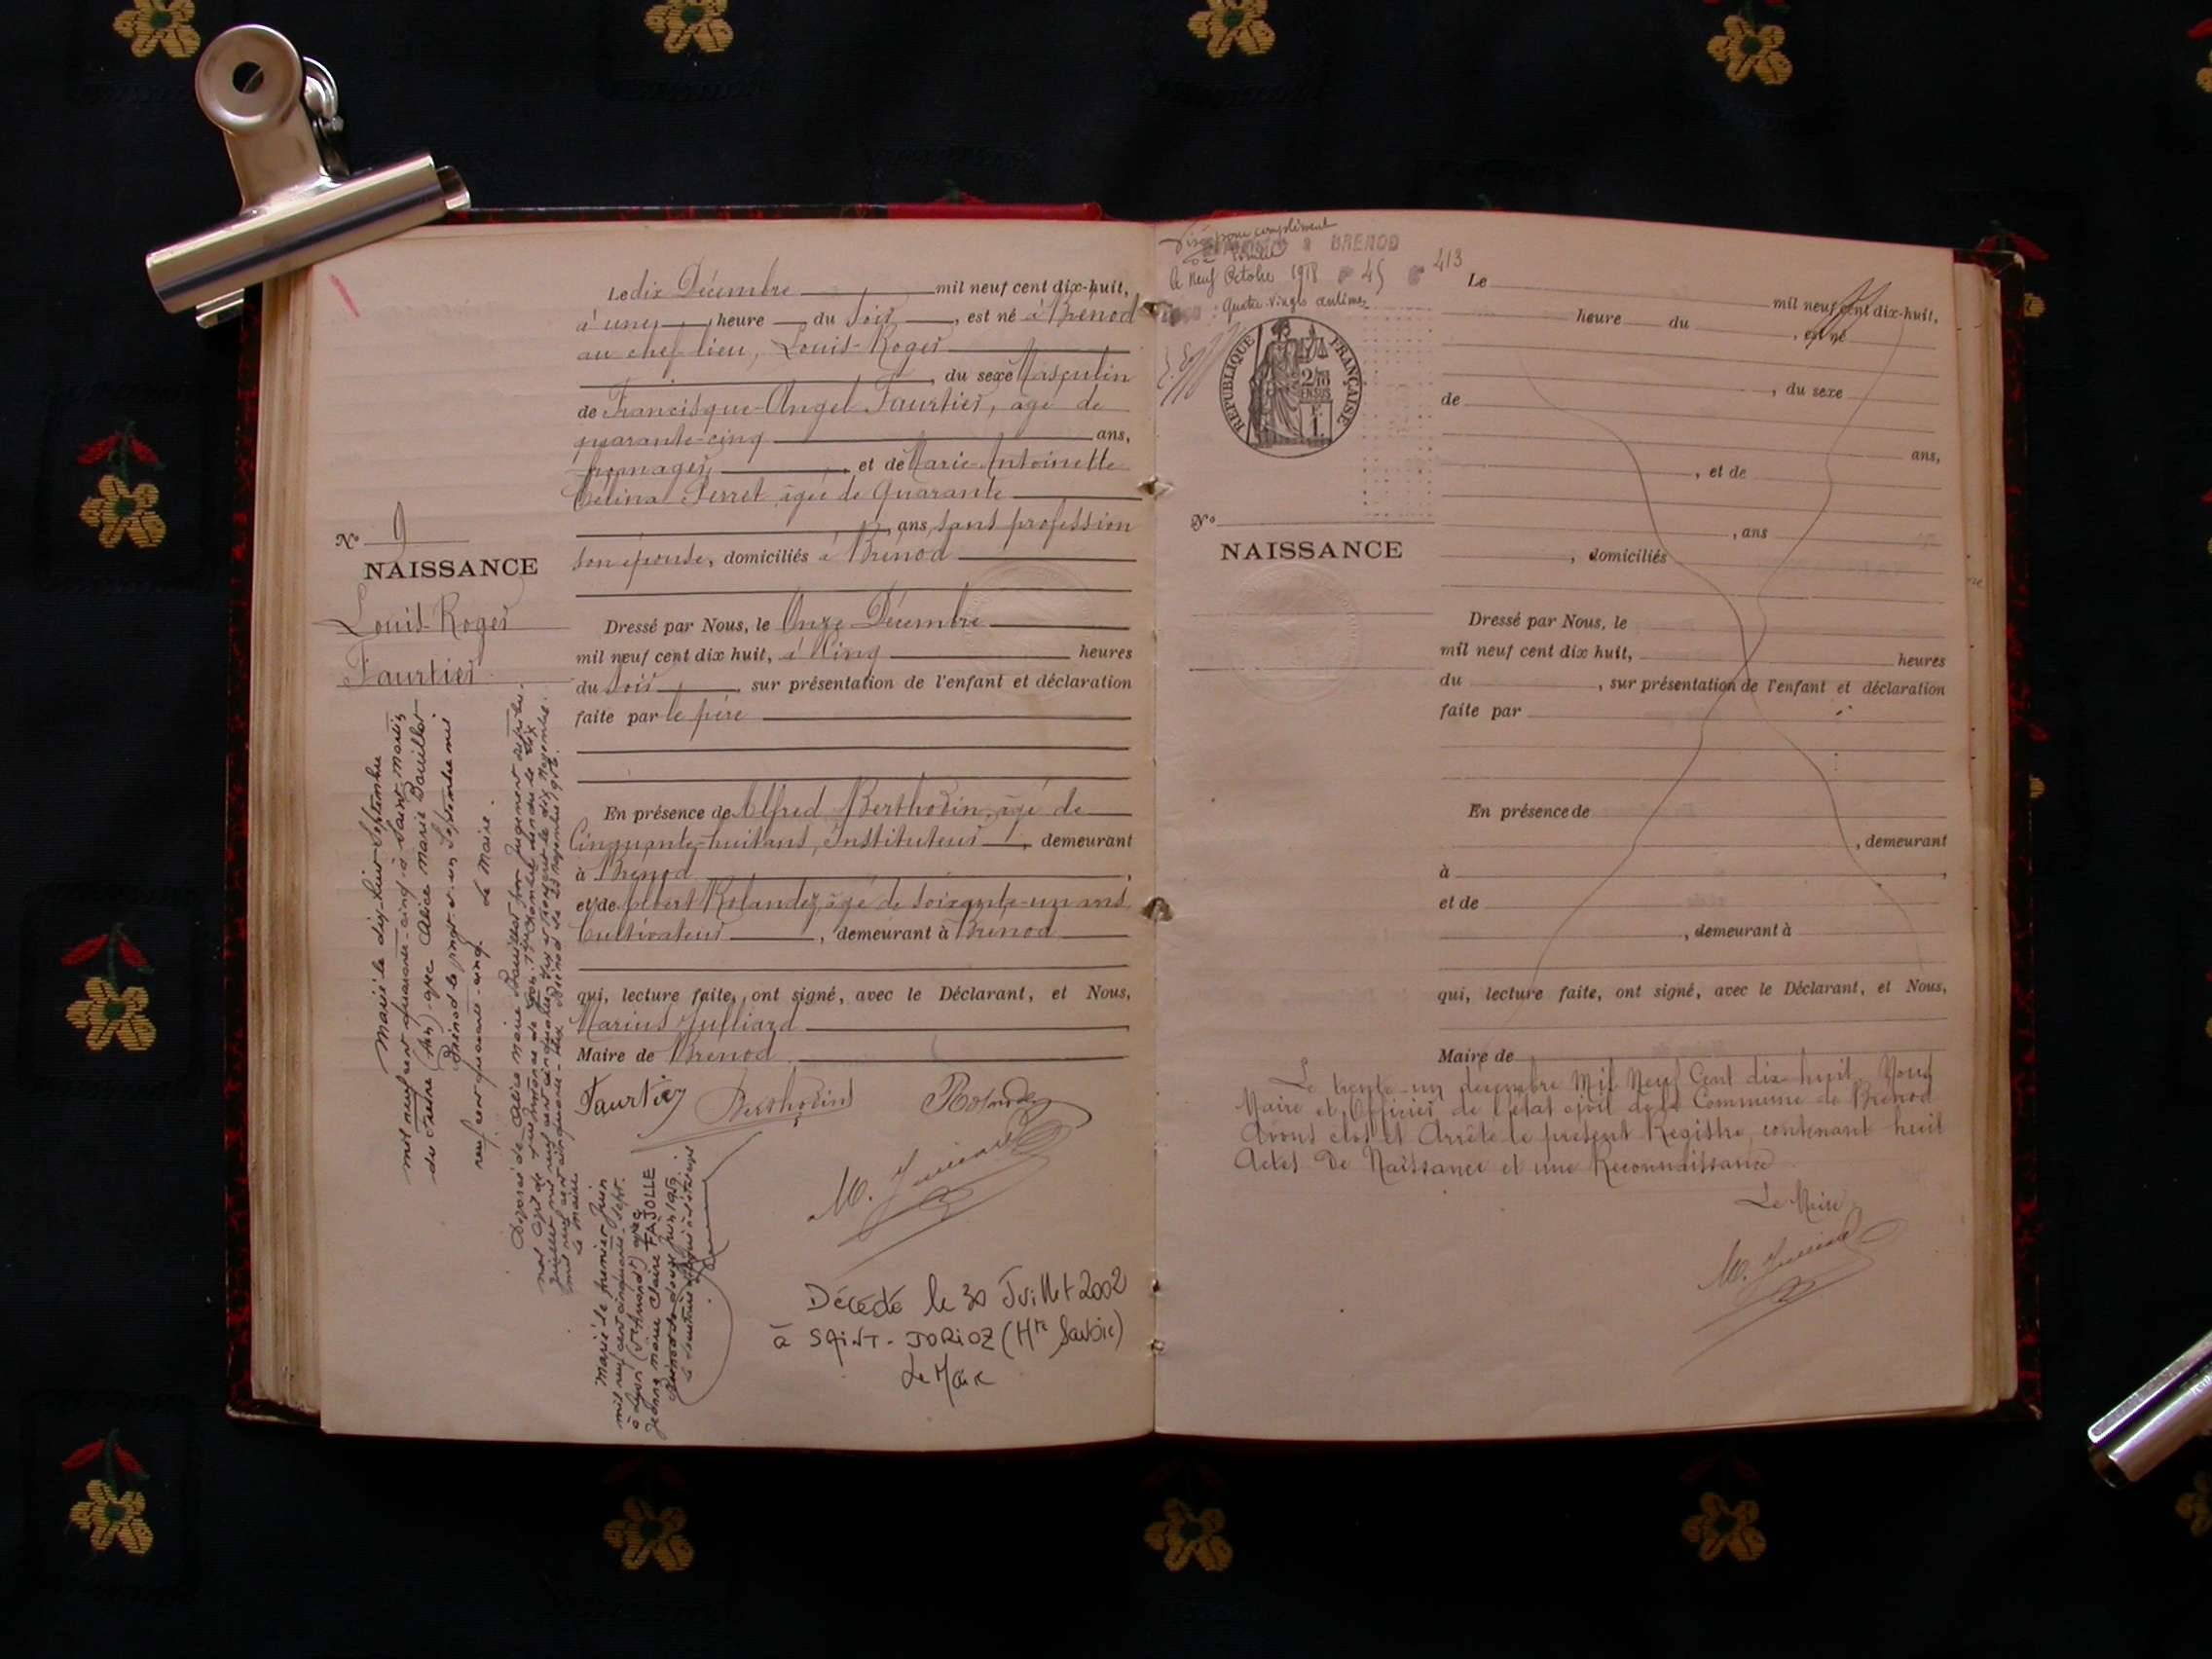 Le dix Décembre mil neuf cent dix-huit,
à une heure du soir, est né à Brénod
au chef-lieu, Louis-Roger
, du sexe Masculin
de Francisque-Angel Faurtier, âgé de
quarante-cinq ans,
fromager, et de Marie-Antoinette
Célina Perret, âgée de Quarante
ans, sans profession
son épouse, domiciliés à Brénod
Nº 9
NAISSANCE
Louis-Roger
Faurtier
Dressé par Nous, le Onze Décembre
mil neuf cent dix huit, à Cinq heures
du soir, sur présentation de l'enfant et déclaration
faite par le père
En présence de Alfred Berthodin, âgé de
Cinquante-huit ans, Instituteur, demeurant
à Brénod,
et de Albert Rolandez, âgé de soixante-un ans
Cultivateur, demeurant à Brénod
qui, lecture faite, ont signé, avec le Déclarant, et Nous,
Marius Julliard
Maire de Brénod
Faurtier Berthodin Rolandez
M. Julliard
Marié le dix-huit Septembre
mil neuf cent quarante-cinq à Saint-Mauris
du Frêne (Ain) avec Alice Marie Bouillot
Brénod le vingt et un Septembre mil
neuf cent quarante-cinq
Le Maire.
Divorcé de Alice Marie Bouillot par jugement
Le Maire
Marié le premier Juin
mil neuf cent cinquante-sept
à Lyon avec
Jeanne Marie Claire FAJOLLE
Décédé le 30 Juillet 2002
à SAINT-JORIOZ (Hte Savoie)
Le Maire
Visé pour complément
de timbre
BRENOD
le Neuf Octobre 1918 45 413
: Quatre-vingts centimes
REPUBLIQUE FRANÇAISE
2/10
EN SUS
1 F.
Le
mil neuf cent dix-huit,
heure du , est né
, du sexe
de
ans,
, et de
, ans
, domiciliés
Nº
NAISSANCE
Dressé par Nous, le
mil neuf cent dix huit, heures
du , sur présentation de l'enfant et déclaration
faite par
En présence de
, demeurant
à ,
et de
, demeurant à
qui, lecture faite, ont signé, avec le Déclarant, et Nous,
Maire de
Le trente-un décembre Mil Neuf Cent dix-huit, Nous
Maire et Officier de l'état civil de la Commune de Brénod
Avons clos et Arrêté le présent Registre, contenant huit
Actes De Naissance et une Reconnaissance
Le Maire
M. Julliard